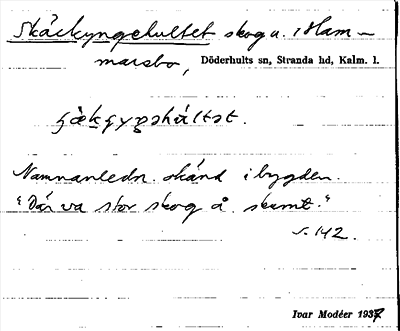 Skäckyngehultet skog u. i Ham-
marsbo, Döderhults sn, Stranda hd, Kalm. l.
Namnanledn. okänd i bygden.
"Där va stor skog å skamt."
s. 142.
Ivar Modéer 1937